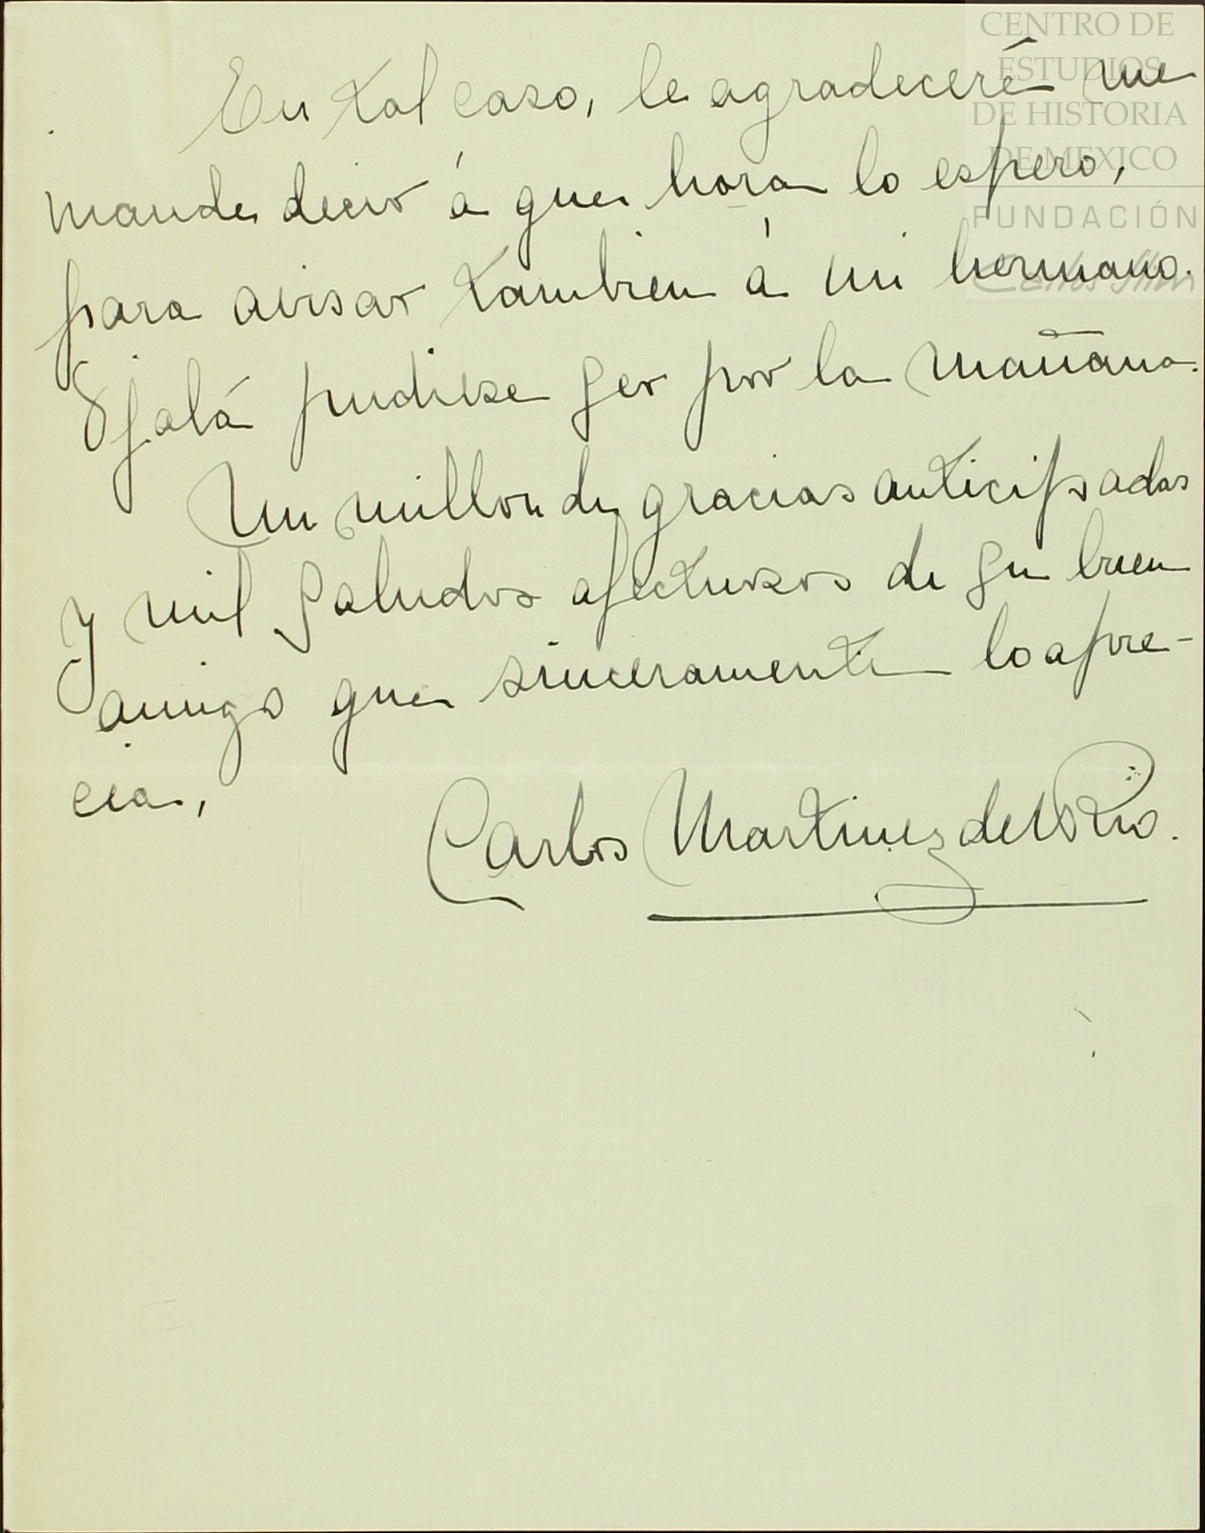 CENTRO DE
ESTUDIOS
DE HISTORIA
DE MEXICO
FUNDACIÓN
Carlos Slim
En tal caso, le agradeceré me
mande decir á que hora lo espero,
para avisar tambien á mi hermano.
Ojalá pudiese ser por la mañana.
Un millon de gracias anticipadas
y mil saludos afectuosos de su buen
amigo que sinceramente lo apre-
cia,
Carlos Martinez del Rio.